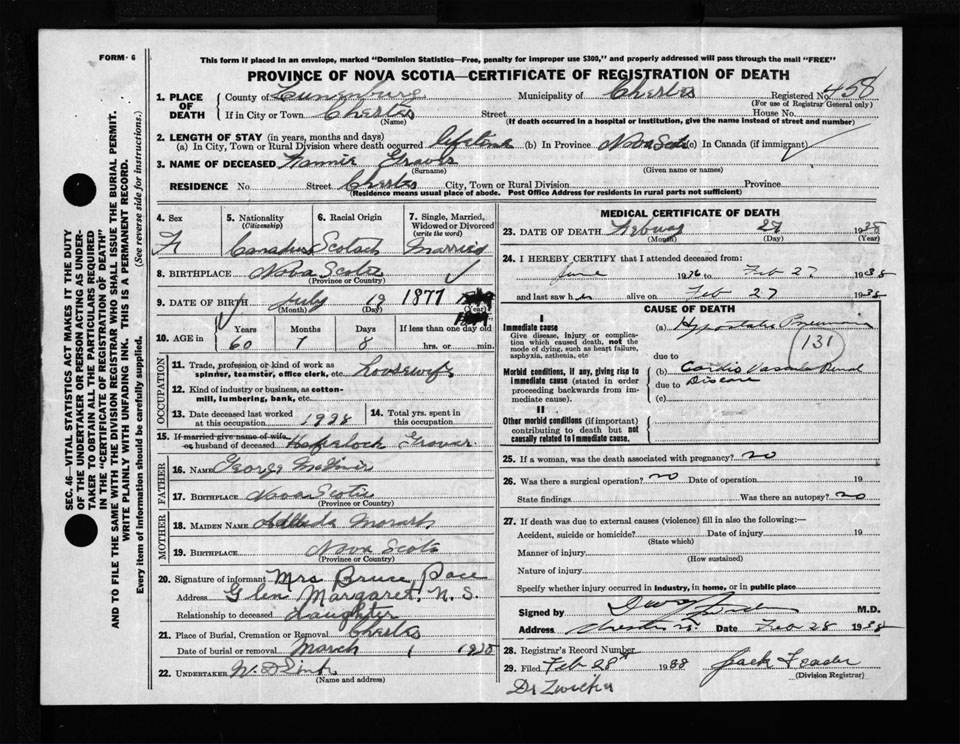 FORM - 6
This form if placed in an envelope, marked "Dominion Statistics—Free, penalty for improper use $300," and properly addressed will pass through the mail "FREE"
PROVINCE OF NOVA SCOTIA—CERTIFICATE OF REGISTRATION OF DEATH
1. PLACE OF DEATH County of Lunenburg Municipality of Chester Registered No. 458
(For use of Registrar General only)
If in City or Town Chester Street House No.
(Name) (If death occurred in a hospital or institution, give the name instead of street and number)
2. LENGTH OF STAY (in years, months and days)
(a) In City, Town or Rural Division where death occurred lifetime (b) In Province Nova Scotia (c) In Canada (if immigrant)
3. NAME OF DECEASED Graves
(Surname) (Given name or names)
RESIDENCE No Street Chester City, Town or Rural Division Province
(Residence means usual place of abode. Post Office Address for residents in rural parts not sufficient)
4. Sex 5. Nationality (Citizenship) 6. Racial Origin 7. Single, Married, Widowed or Divorced (write the word)
F Canadian Scotch Married
8. BIRTHPLACE Nova Scotia
(Province or Country)
9. DATE OF BIRTH July 19 1877
(Month) (Day) (Year)
10. AGE in Years Months Days If less than one day old
60 7 8 hrs. or min.
OCCUPATION
11. Trade, profession or kind of work as spinner, teamster, office clerk, etc. housewife
12. Kind of industry or business, as cotton-mill, lumbering, bank, etc.
13. Date deceased last worked at this occupation 1938 14. Total yrs. spent in this occupation
15. If married give name of wife or husband of deceased
FATHER
16. NAME George
17. BIRTHPLACE Nova Scotia
(Province or Country)
MOTHER
18. MAIDEN NAME
19. BIRTHPLACE Nova Scotia
(Province or Country)
20. Signature of informant Mrs Bruce
Address Glen Margaret. N. S.
Relationship to deceased daughter
21. Place of Burial, Cremation or Removal Chester
Date of burial or removal March 1 1938
22. UNDERTAKER W. D
(Name and address)
MEDICAL CERTIFICATE OF DEATH
23. DATE OF DEATH February 27 1938
(Month) (Day) (Year)
24. I HEREBY CERTIFY that I attended deceased from:
June 1936 to Feb 27 1938
and last saw her alive on Feb 27 1938
CAUSE OF DEATH
I
Immediate cause
Give disease, injury or complication which caused death, not the mode of dying, such as heart failure, asphyxia, asthenia, etc
(a) Hypostatic Pneumonia
131
due to
Morbid conditions, if any, giving rise to immediate cause (stated in order proceeding backwards from immediate cause).
(b) Cardio Vascular Renal
due to Disease
(c)
II
Other morbid conditions (if important) contributing to death but not causally related to immediate cause.
25. If a woman, was the death associated with pregnancy? no
26. Was there a surgical operation? no Date of operation 19
State findings Was there an autopsy? no
27. If death was due to external causes (violence) fill in also the following:—
Accident, suicide or homicide? Date of injury 19
(State which)
Manner of injury
(How sustained)
Nature of injury
Specify whether injury occurred in Industry, in home, or in public place
Signed by M.D.
Address Chester Date Feb 28 1938
28. Registrar's Record Number
29. Filed Feb 28th 1938 Jack
(Division Registrar)
Dr Zwicker
SEC. 46—VITAL STATISTICS ACT MAKES IT THE DUTY
OF THE UNDERTAKER OR PERSON ACTING AS UNDER-
TAKER TO OBTAIN ALL THE PARTICULARS REQUIRED
IN THE "CERTIFICATE OF REGISTRATION OF DEATH"
AND TO FILE THE SAME WITH THE DIVISION REGISTRAR WHO SHALL ISSUE THE BURIAL PERMIT.
WRITE PLAINLY WITH UNFADING INK. THIS IS A PERMANENT RECORD.
Every item of information should be carefully supplied. (See reverse side for instructions.)